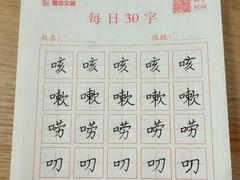 墨点文创
每日30字
姓名: 班级:
咳 咳 咳 咳 咳
嗽 嗽 嗽 嗽 嗽
唠 唠 唠 唠 唠
叨 叨 叨 叨 叨